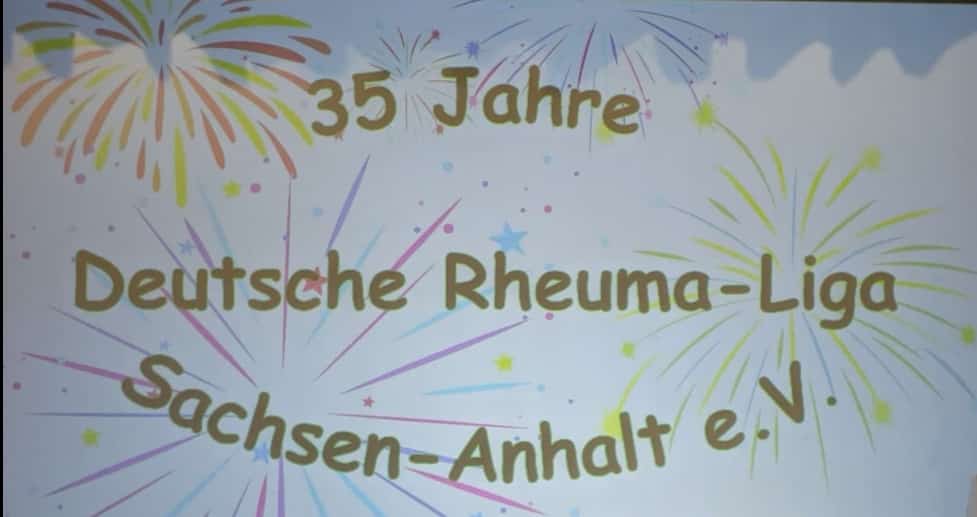 35 Jahre
Deutsche Rheuma-Liga
Sachsen-Anhalt e.V.